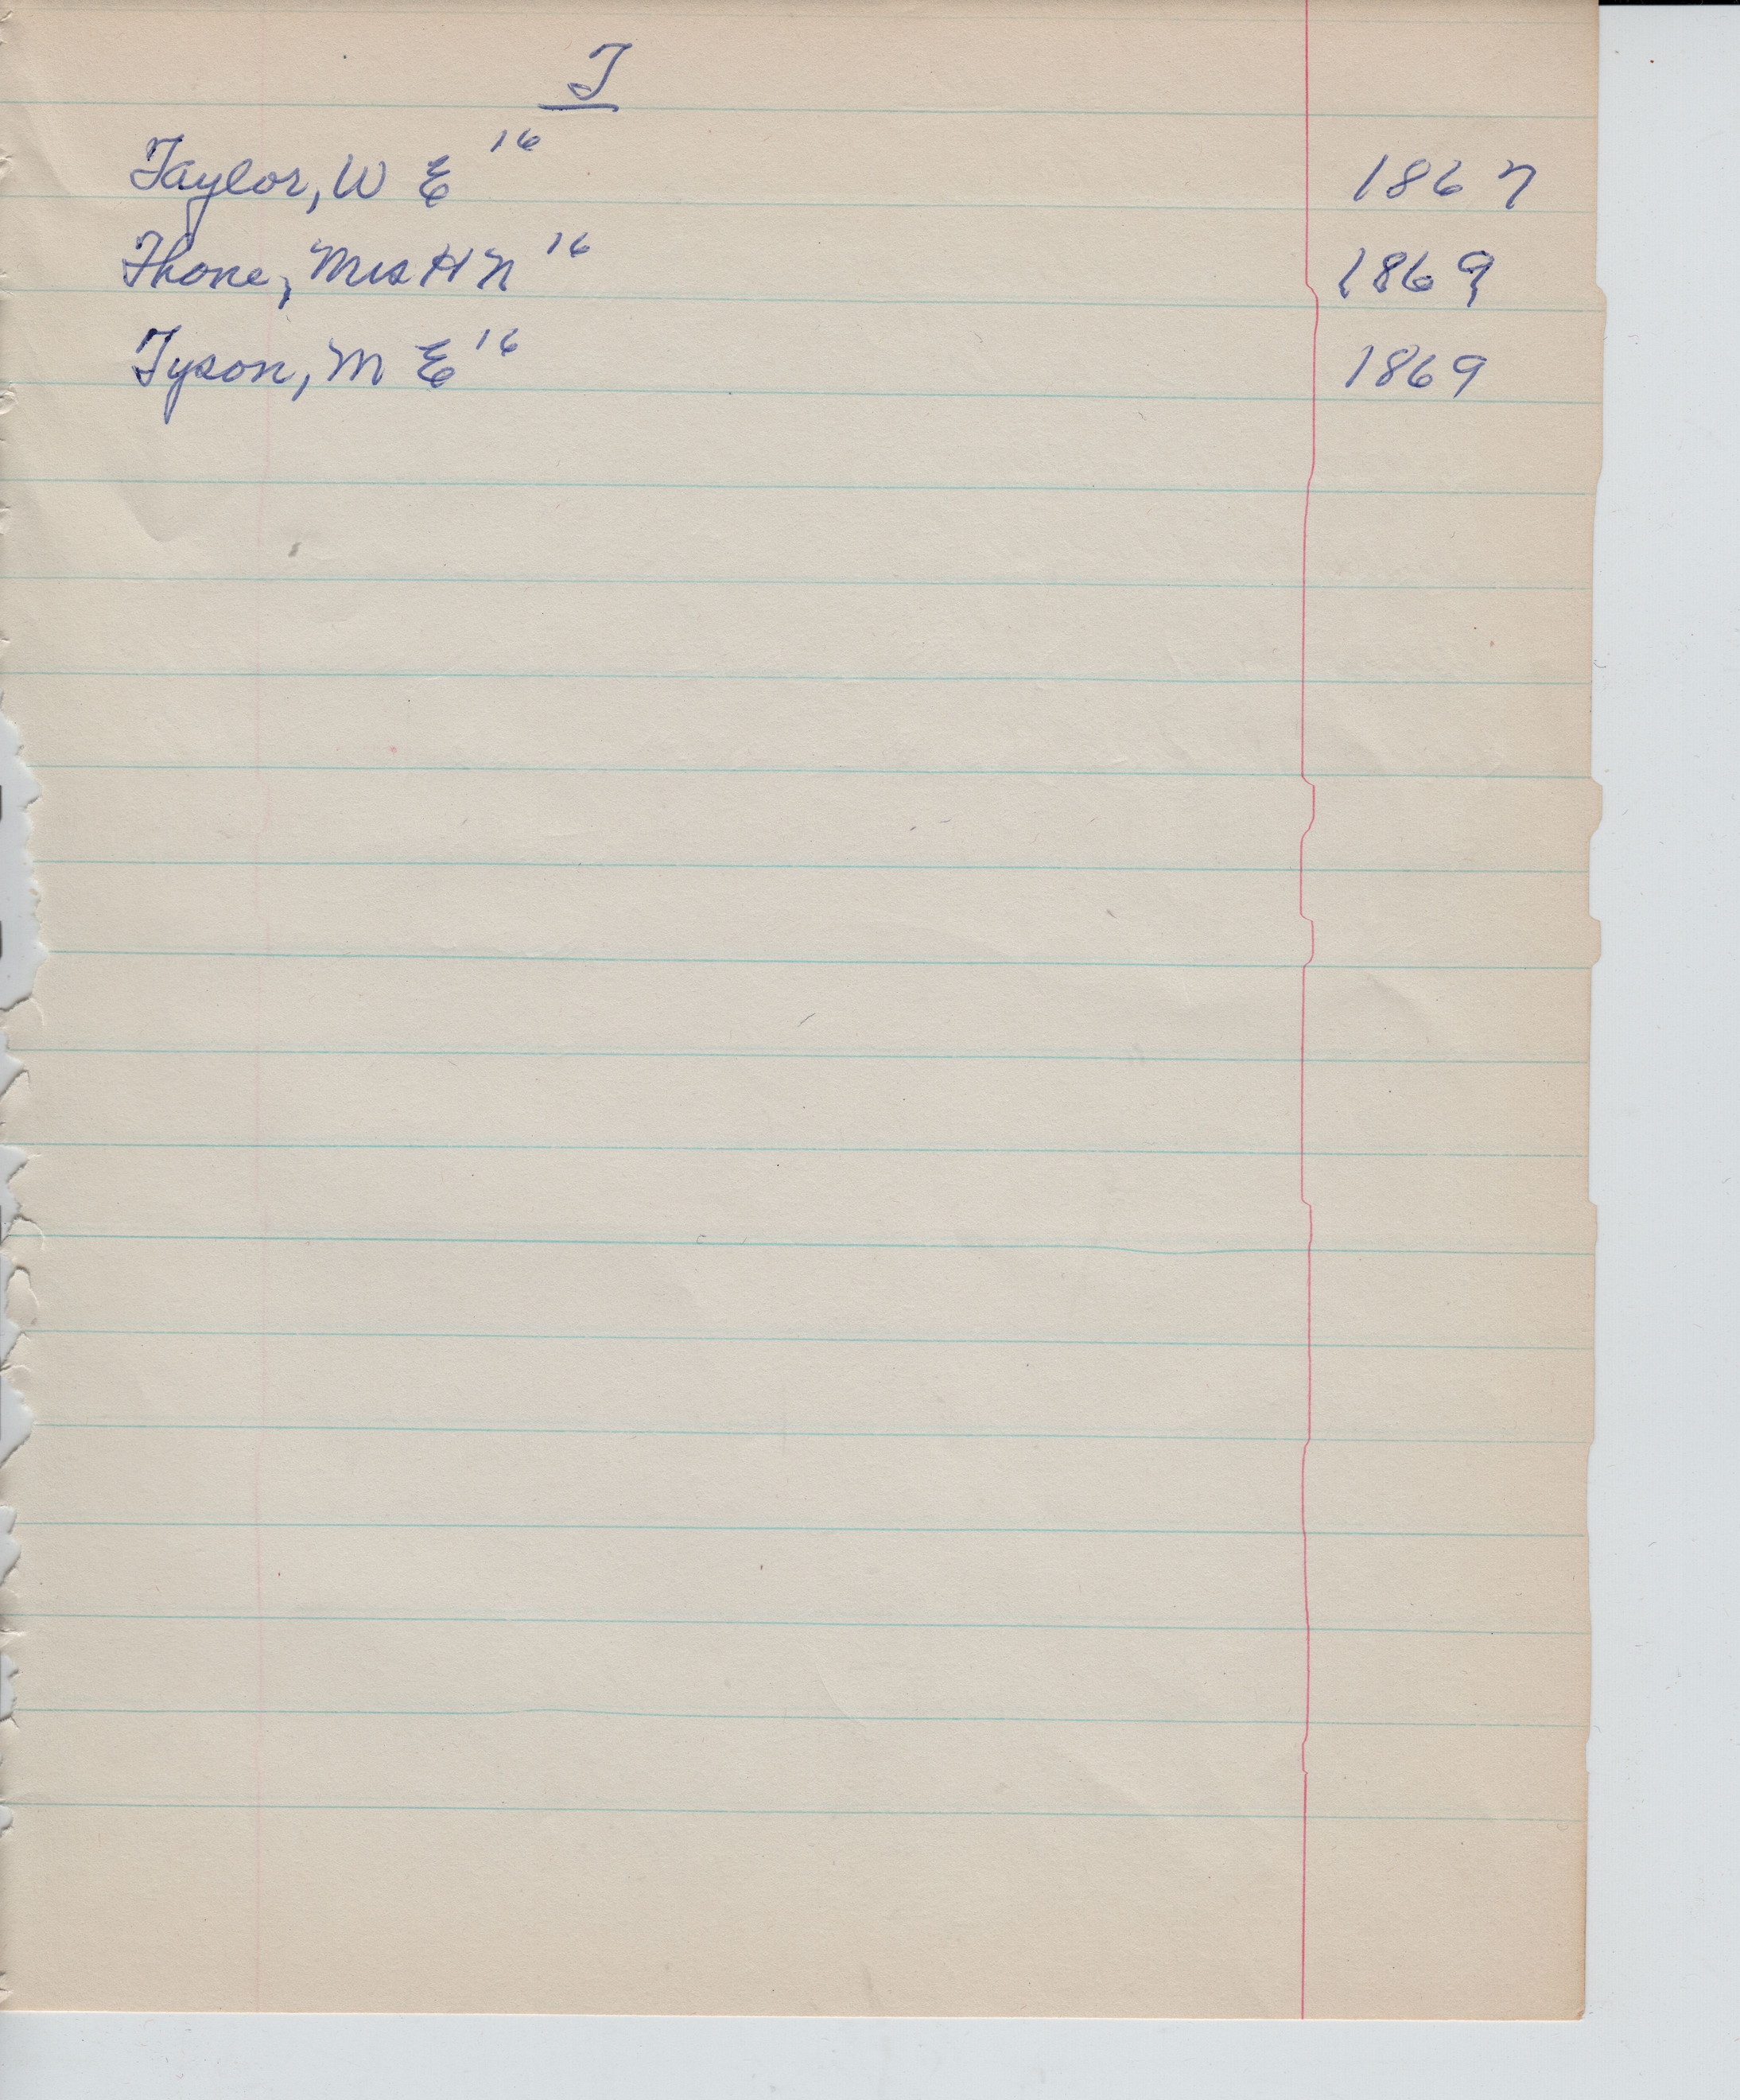 T
Taylor, W E 16 1867
Thone, Mrs H N 16 1869
Tyson, M E 16 1869